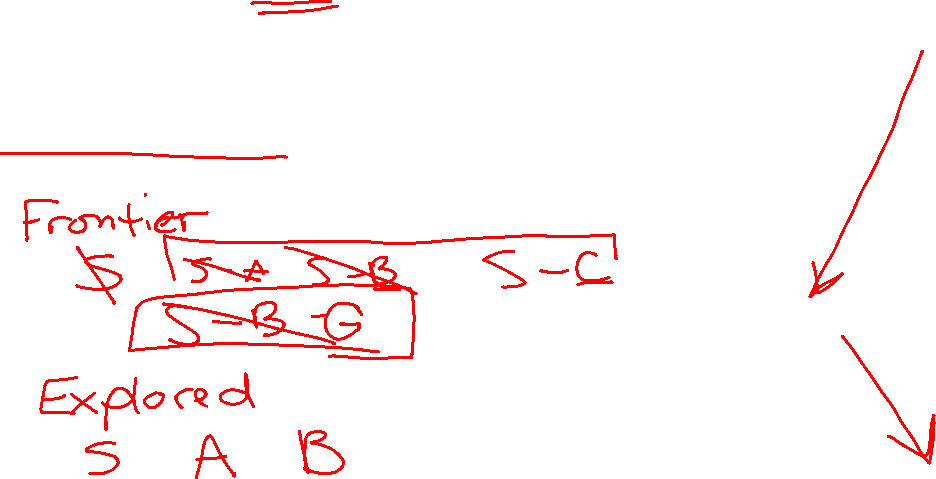 Frontier
S S-A S-B S-C
S-B-G
Explored
S A B